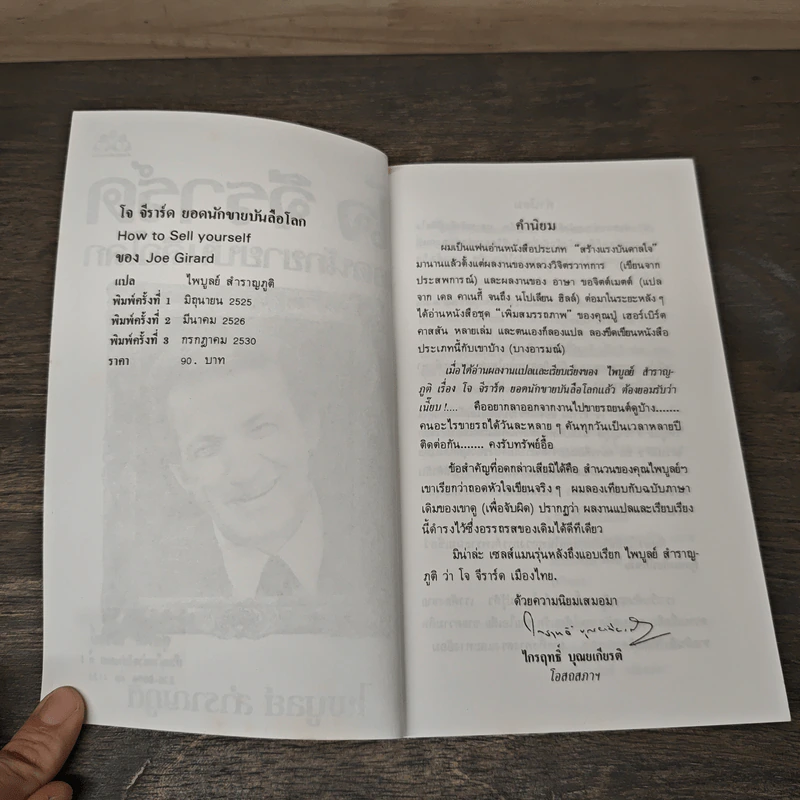 โจ จีราร์ด ยอดนักขายบันลือโลก
How to Sell yourself
ของ Joe Girard
แปล ไพบูลย์ สำราญภูติ
พิมพ์ครั้งที่ 1 มิถุนายน 2525
พิมพ์ครั้งที่ 2 มีนาคม 2526
พิมพ์ครั้งที่ 3 กรกฎาคม 2530
ราคา 90. บาท
คำนิยม
ผมเป็นแฟนอ่านหนังสือประเภท “สร้างแรงบันดาลใจ”
มานานแล้วตั้งแต่ผลงานของหลวงวิจิตรวาทการ (เขียนจาก
ประสพการณ์) และผลงานของ อาษา ขอจิตต์เมตต์ (แปล
จาก เดล คาเนกี้ จนถึง นโปเลียน ฮิลล์) ต่อมาในระยะหลัง ๆ
ได้อ่านหนังสือชุด “เพิ่มสมรรถภาพ” ของคุณปู่ เฮอร์เบิร์ต
คาสสัน หลายเล่ม และตนเองก็ลองแปล ลองขีดเขียนหนังสือ
ประเภทนี้กับเขาบ้าง (บางอารมณ์)
เมื่อได้อ่านผลงานแปลและเรียบเรียงของ ไพบูลย์ สำราญ-
ภูติ เรื่อง โจ จีราร์ด ยอดนักขายบันลือโลกแล้ว ต้องยอมรับว่า
เนี๊ยบ!.... คืออยากลาออกจากงานไปขายรถยนต์ดูบ้าง.......
คนอะไรขายรถได้วันละหลาย ๆ คันทุกวันเป็นเวลาหลายปี
ติดต่อกัน....... คงรับทรัพย์อื้อ
ข้อสำคัญที่อดกล่าวเสียมิได้คือ สำนวนของคุณไพบูลย์ฯ
เขาเรียกว่าถอดหัวใจเขียนจริง ๆ ผมลองเทียบกับฉบับภาษา
เดิมของเขาดู (เพื่อจับผิด) ปรากฏว่า ผลงานแปลและเรียบเรียง
นี้ดำรงไว้ซึ่งอรรถรสของเดิมได้ดีทีเดียว
มิน่าล่ะ เซลส์แมนรุ่นหลังถึงแอบเรียก ไพบูลย์ สำราญ-
ภูติ ว่า โจ จีราร์ด เมืองไทย.
ด้วยความนิยมเสมอมา
ไกรฤทธิ์ บุณยเกียรติ
โอสถสภาฯ